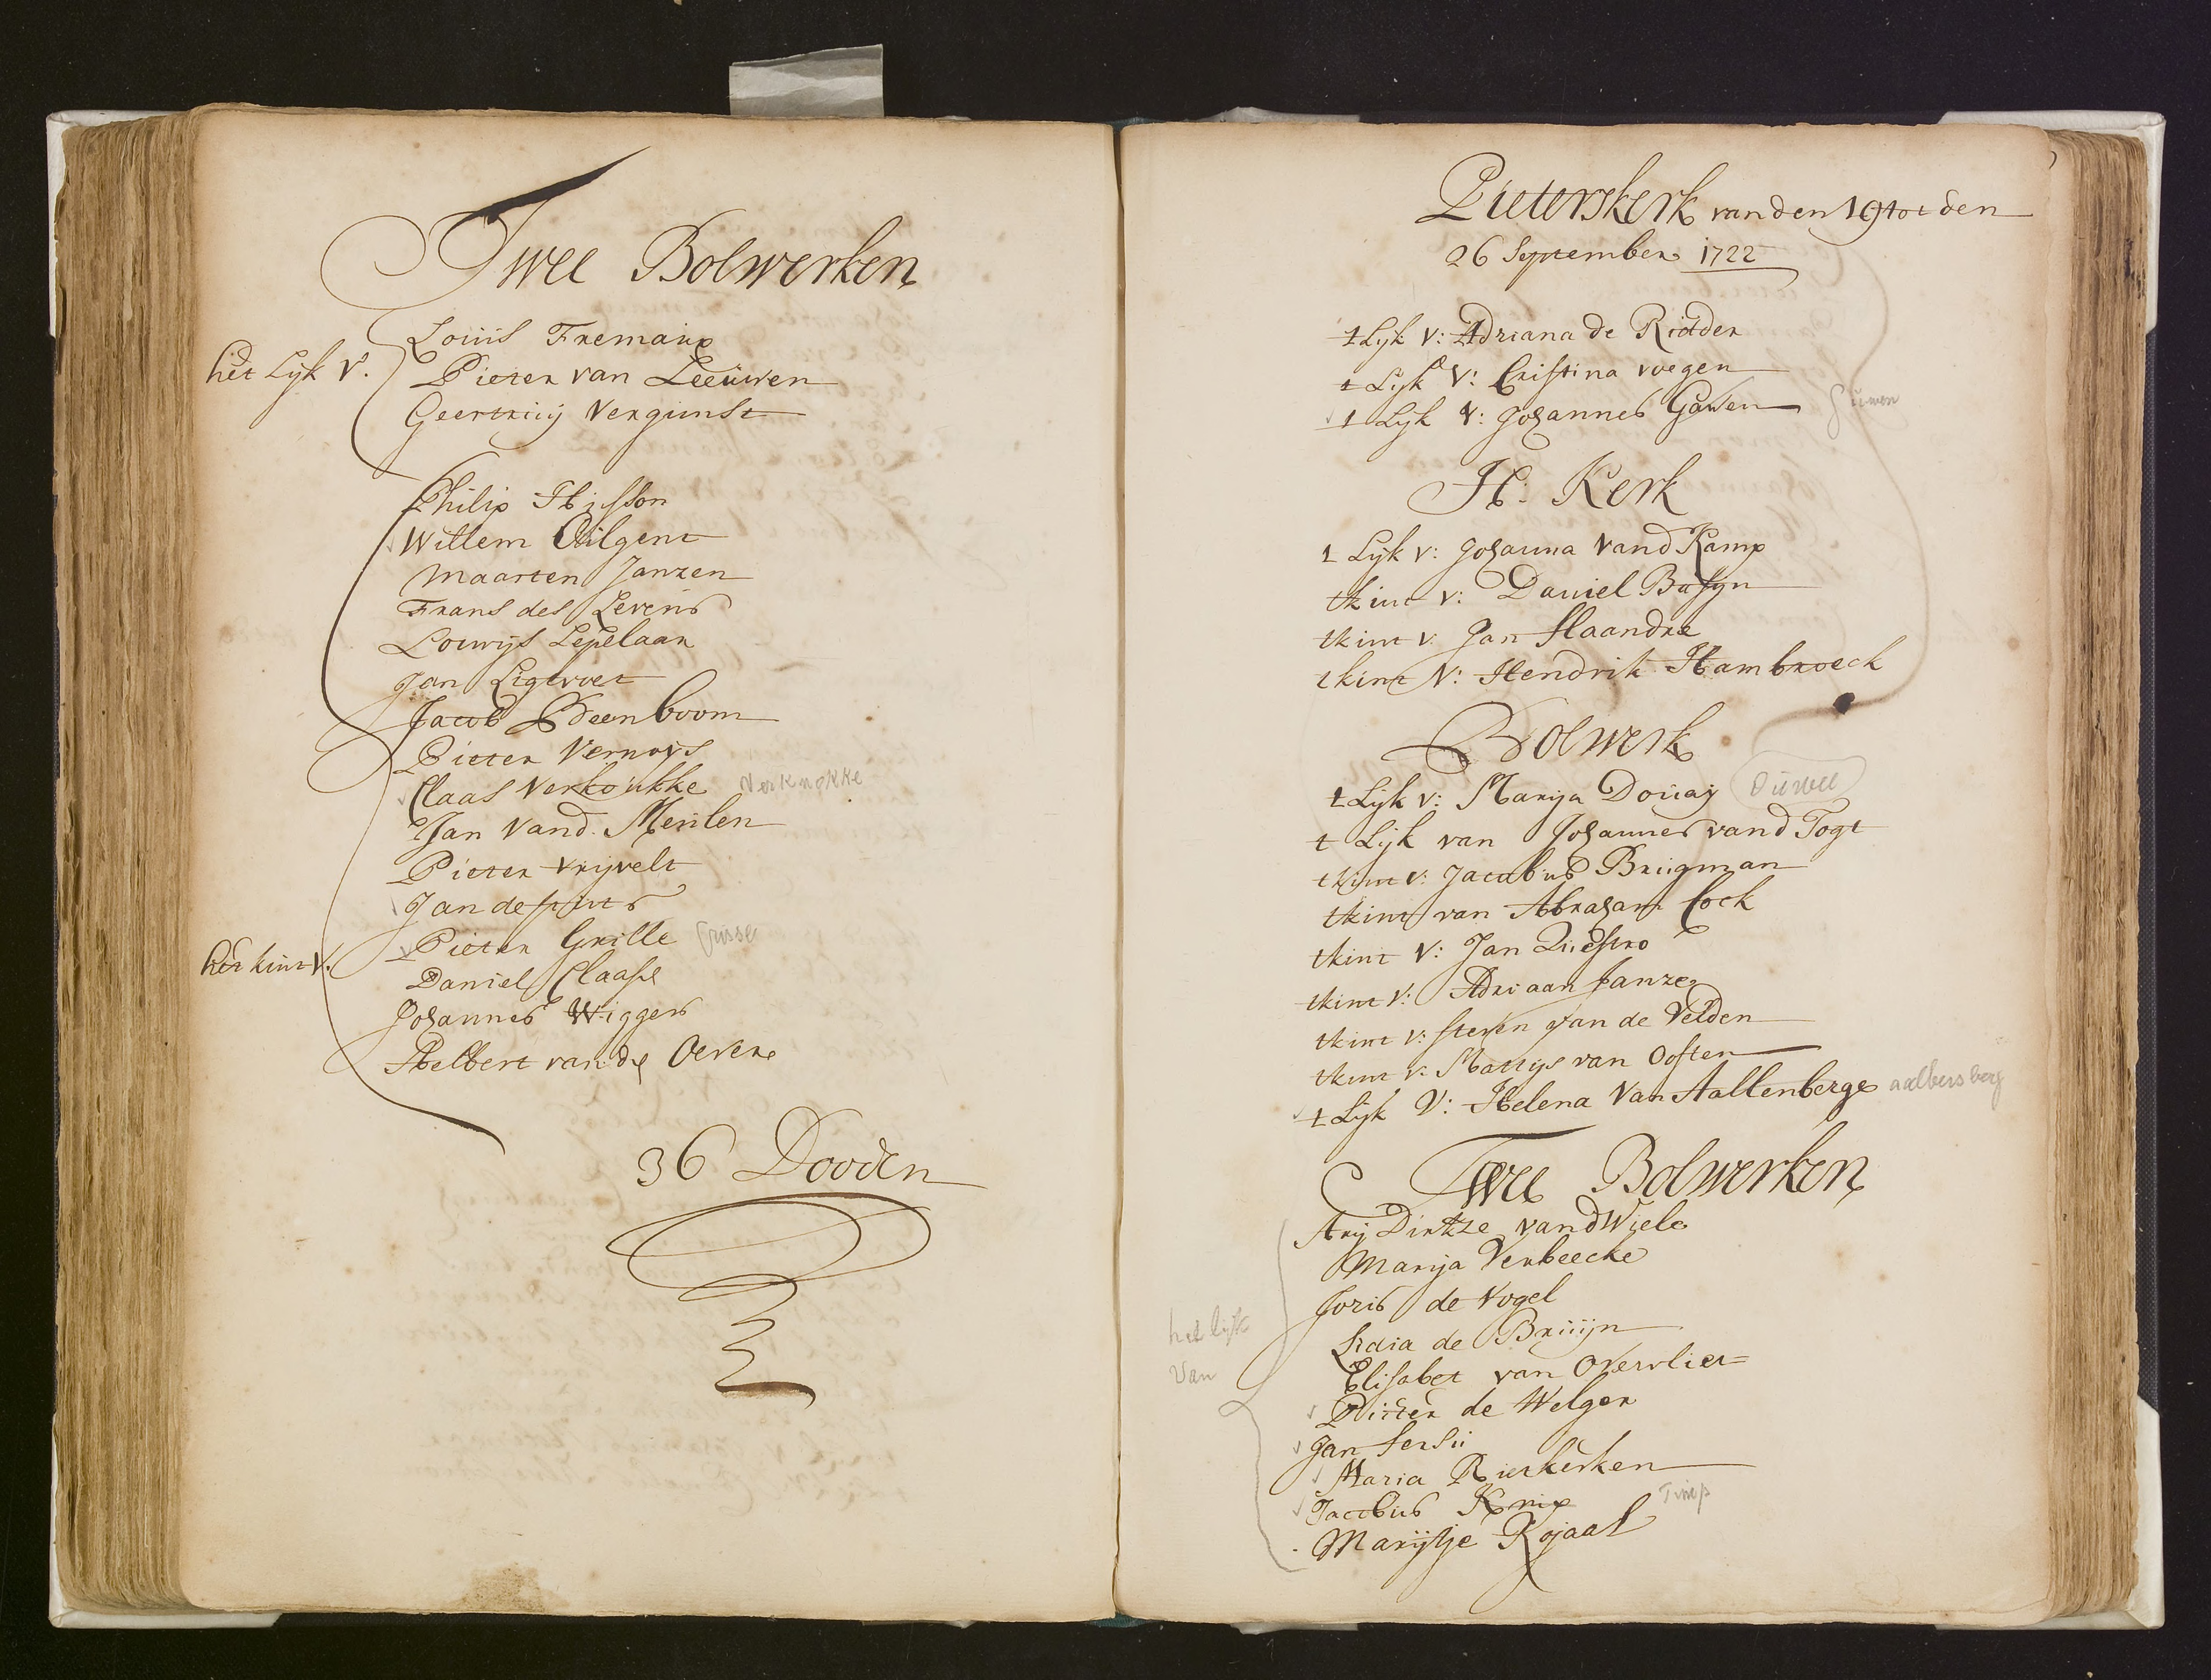 Twee Bolwerken
Louis Fremaux
het Lyk V. Pieter van Leeuwen
Geertruij Vergunst
Philip
Willem Dilgent
Maarten Janzen
Frans des Levens
Louwijs Lepelaar
Jan Ligtvoet
Jacob Beenboom
Pieter Vernoys
Claas Verkoukke Verknokke
Jan vand. Meulen
Pieter vrijvelt
Jan de
Pieter Grille Grisse
het kint V. Daniel Claase
Johannes Wigger
Helbert vande Oevere
36 Dooden
Pieterskerk van den 19 tot den
26 September 1722
t Lyk v: Adriana de Ridder
t Lyk V: Cristina voegen
t Lyk V: Johannes Gouwen
H. Kerk
t Lyk v: Johanna vand Kamp
tkint v: Daniel Basyn
tkint v: Jan Slaandre
tkint V: Hendrik Hambroeck
Bolwerk
t Lyk v: Marija Douaij Duwee
t Lyk van Johannes vand Togt
tkint v: Jacobus Bruigman
tkint van Abraham Cock
tkint V: Jan Questro
tkint V: Adriaan Janze
tkint v: Steven van de Velden
tkint v: Mattijs van Oosten
t Lyk V: Helena Van Aallenberge aalbersberg
Twee Bolwerken
Arij Dirkze vand Wiele
Marija Verbeecke
Joris de Vogel
het lijk Lidia de Bruijn
Van Elisabet van Overvliet
Pieter de Welger
Jan Sersu
Maria Rierkerken
Jacobus Knip Timp
Marijtje Rojaal